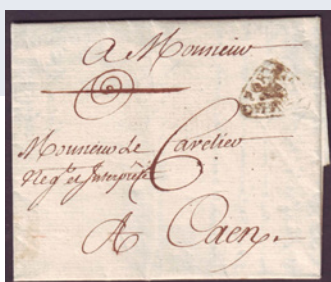 A Monsieur
Monsieur Le Carelier
Negt. et Interprète
A Caen.